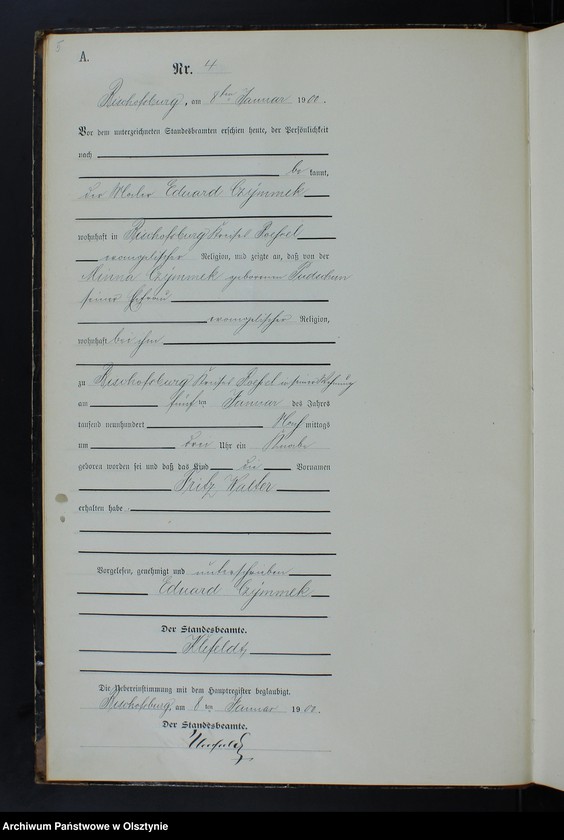 5
A.
Nr. 4
Bischofsburg, am 8ten Januar 1900.
Vor dem unterzeichneten Standesbeamten erschien heute, der Persönlichkeit
nach
be kannt,
der Maler Eduard Czymmek
wohnhaft in Bischofsburg Kreises Roessel
evangelischer Religion, und zeigte an, daß von der
Minna Czymmek geborenen
seiner Ehefrau
evangelischer Religion,
wohnhaft bei ihm
zu Bischofsburg Kreises Roessel in seiner Wohnung
am fünf ten Januar des Jahres
tausend neunhundert Nach mittags
um drei Uhr ein Knabe
geboren worden sei und daß das Kind die Vornamen
Fritz Walter
erhalten habe.
Vorgelesen, genehmigt und unterschrieben
Eduard Czymmek
Der Standesbeamte.
Die Uebereinstimmung mit dem Hauptregister beglaubigt.
Bischofsburg, am 8 ten Januar 1900.
Der Standesbeamte.
Archiwum Państwowe w Olsztynie